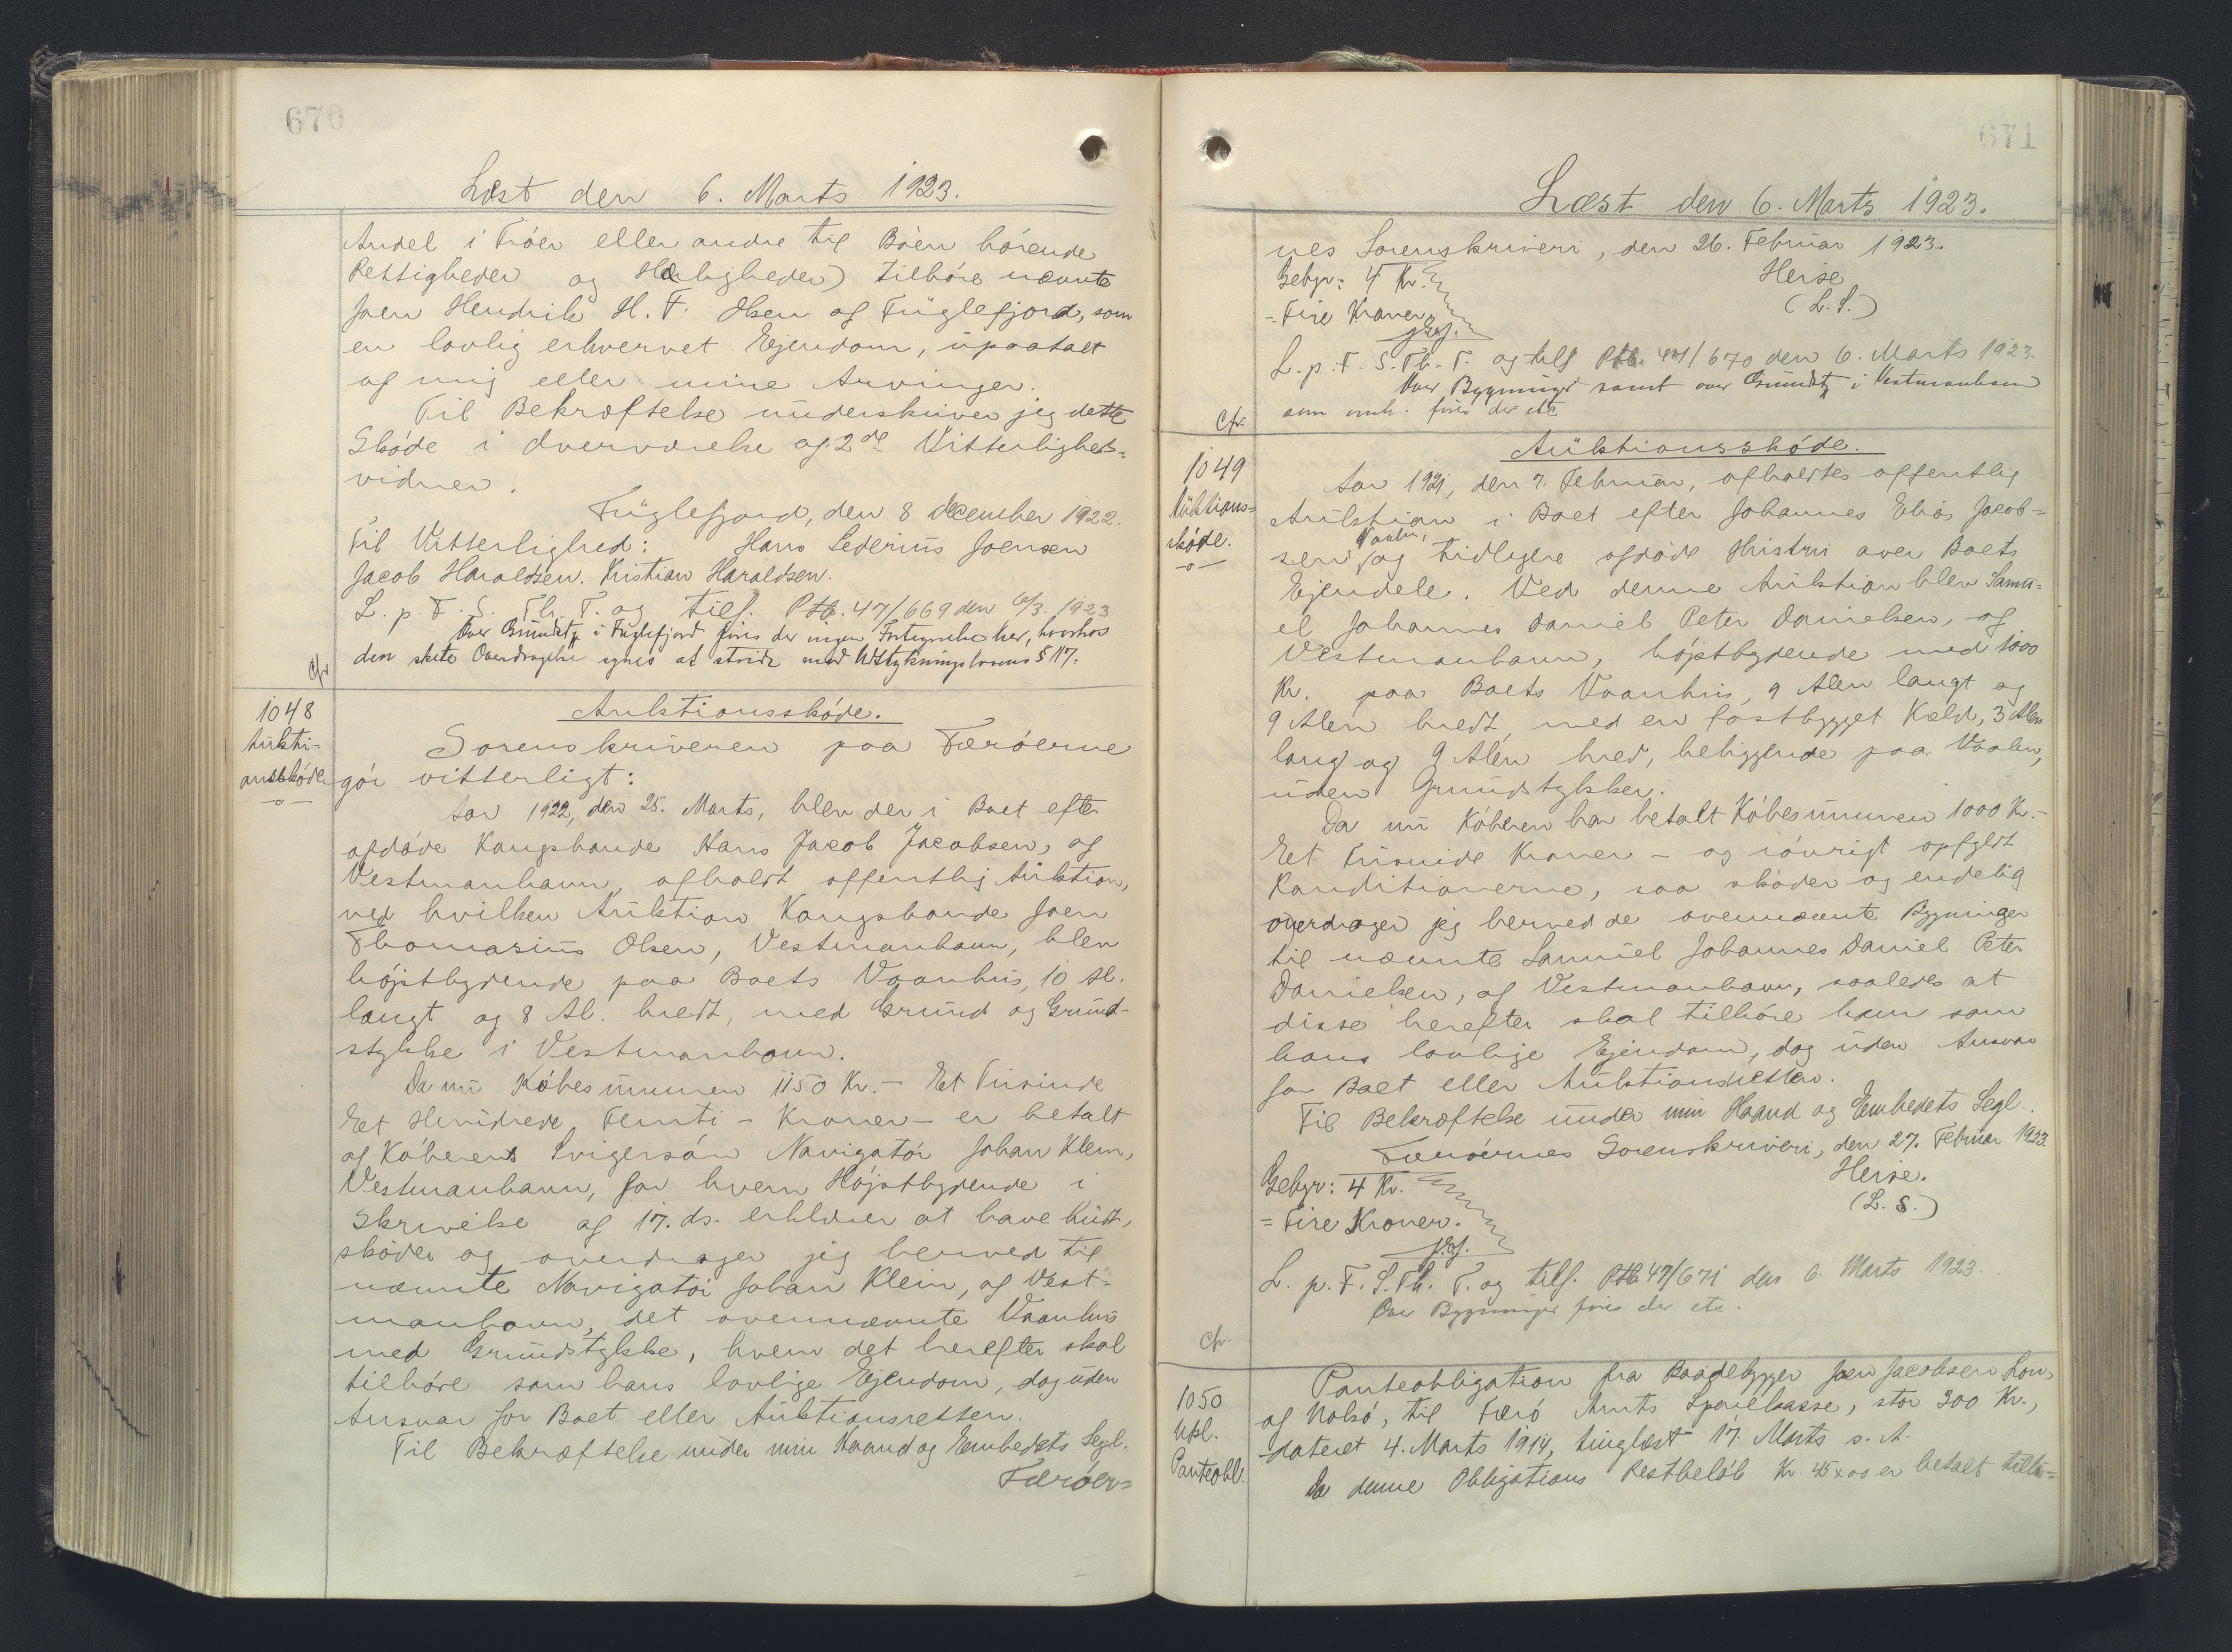 670
Læst den 6. Marts 1923.
Andel i Tróer eller andre til Bóen hórende
Rettigheder og Herligheder) tilhóre nævnte
Joen Hendrik H. F. Olsen af Fuglefjord, som
en lovlig erhvervet Ejendom, upaatalt
af mig eller mine Arvinger.
Til Bekræftelse underskriver jeg dette
Skóde i Overværelse af 2de Vitterligheds=
vidner.
Fuglefjord, den 8 December 1922.
Til Vitterlighed: Hans Lederius Joensen
Jacob Haraldsen. Kristian Haraldsen.
L. p. F. S. Th. T. og tilf. Ptb. 47/669 den 6/3. 1923
Over Grundst. i Fuglefjord fóres der ingen Fortegnelse her, hvorhos
den skete Overdragelse synes at stride mod Udstykningslovens § 17.
Cfr
1048
Aukti-
onsskóde
-o-
Auktionsskóde.
Sorenskriveren paa Færóerne
gór vitterligt:
Aar 1922, den 25. Marts, blev der i Boet efter
afdóde Kongsbonde Hans Jacob Jacobsen, af
Vestmanhavn, afholdt offentlig Auktion,
ved hvilken Auktion Kongsbonde Joen
Thomasius Olsen, Vestmanhavn, blev
hójstbydende paa Boets Vaanhus, 10 Al.
langt og 8 Al. bredt, med Grund og Grund-
stykke i Vestmanhavn.
Da nu Kóbesummen 1150 Kr. - Et Tusinde
Et Hundrede Femti - Kroner - er betalt
af Kóberens Svigersón Navigatór Johan Klein,
Vestmanhavn, for hvem Hójstbydende i
Skrivelse af 17. ds. erklærer at have budt,
skóder og overdrager jeg herved til
nævnte Navigatór Johan Klein, af Vest=
manhavn, det ovennævnte Vaanhus
med Grundstykke, hvem det herefter skal
tilhóre som hans lovlige Ejendom, dog uden
Ansvar for Boet eller Auktionsretten.
Til Bekræftelse under min Haand og Embedets Segl.
Færóer=
671
Læst den 6. Marts 1923.
nes Sorenskriveri, den 26. Februar 1923.
Gebyr: 4 Kr. Heise
= Fire Kroner. (L. S.)
L. p. F. S. Th. T. og tilf. Ptb. 47/670 den 6. Marts 1923.
Over Bygninger samt over Grundst. i Vestmanhavn
som omh. fóres der etc
Cfr.
1049
Auktions=
skóde.
-o-
Auktionsskóde.
Aar 1921, den 7. Februar, afholdtes offentlig
Auktion i Boet efter Johannes Elias Jacob=
sen, Vaalen, og tidligere afdóde Hustru over Boets
Ejendele. Ved denne Auktion blev Samu=
el Johannes Daniel Peter Danielsen, af
Vestmanhavn, hójstbydende med 1000
Kr. paa Boets Vaanhus, 9 Alen langt og
9 Alen bredt, med en fastbygget Kæld, 3 Alen
lang og 9 Alen bred, beliggende paa Vaalen,
uden Grundstykker.
Da nu Kóberen har betalt Kóbesummen 1000 Kr. -
Eet Tusinde Kroner - og ióvrigt opfyldt
Konditionerne, saa skóder og endelig
overdrager jeg herved de ovennævnte Bygninger
til nævnte Samuel Johannes Daniel Peter
Danielsen, af Vestmanhavn, saaledes at
disse herefter skal tilhóre ham som
hans lovlige Ejendom, dog uden Ansvar
for Boet eller Auktionsretten.
Til Bekræftelse under min Haand og Embedets Segl.
Færóernes Sorenskriveri, den 27. Februar 1923.
Gebyr: 4 Kr. Heise.
= Fire Kroner. (L. S.)
L. p. F. S. Th. T. og tilf. Ptb 47/671 den 6. Marts 1923.
Over Bygninger fóres der etc.
Cfr.
1050
Upl.
Panteobl.
Panteobligation fra Baadebygger Joen Jacobsen Lon,
af Nolsó, til Færó Amts Sparekasse, stor 300 Kr.,
dateret 4. Marts 1914, tinglæst 17. Marts s. A.
Da denne Obligations Restbelób Kr. 45 x 00 er betalt tilli=